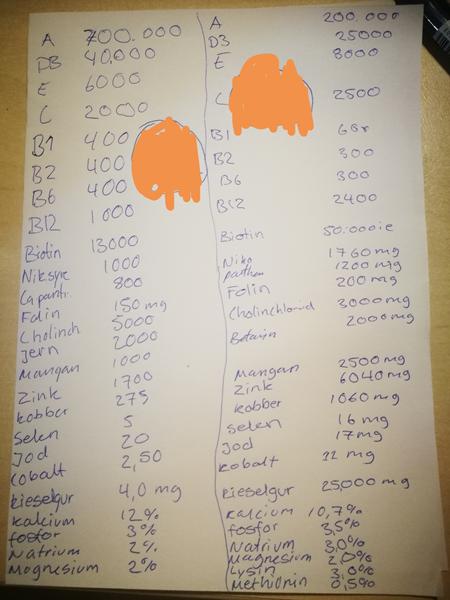 A 700.000
D3 40,000
E 6000
C 2000
B1 400
B2 400
B6 400
B12 1000
Biotin 13000
Niksyre 1000
Ca pantr. 800
Folin 150 mg
Cholinch 5000
Jern 2000
Mangan 1000
Zink 1700
Kobber 275
Selen 5
Jod 20
Cobalt 2,50
Kieselgur 4,0 mg
Kalcium 12%
fosfor 3%
Natrium 2%
Magnesium 2%
A 200.000
D3 25000
E 8000
C 2500
B1
B2 300
B6 300
B12 2400
Biotin 50.000ie
Niko 1760 mg
panthen 1200 mg
Folin 200 mg
Cholinchlorid 3000 mg
Betain 2000 mg
Mangan 2500 mg
Zink 6040 mg
Kobber 1060 mg
Selen 16 mg
Jod 17mg
Kobalt 12 mg
Kieselgur 25,000 mg
Kalcium 10,7%
fosfor 3,5%
Natrium 3,0%
Magnesium 2,0%
Lysin 3,0%
Methionin 0,5%